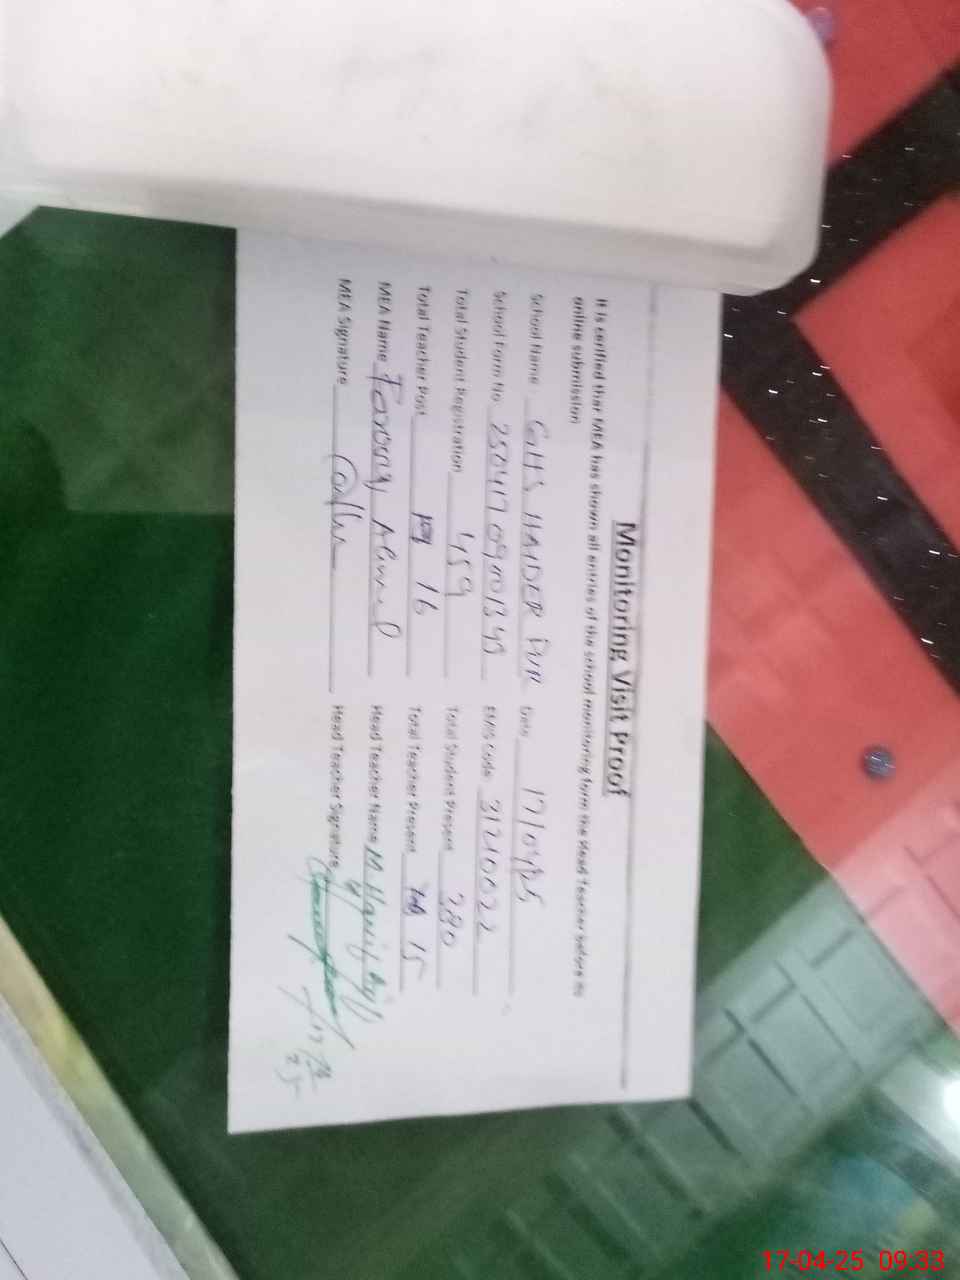 Monitoring Visit Proof
It is cerified that MEA has shown all entries of the school monitoring form the Head Teacher before his
online submission
School Name GHS HAIDER PUR Date 17/04/25
School Form No EMIS Code 31210022
Total Student Registration 459 Total Student Present 280
Total Teacher Post 16 Total Teacher Present 15
MEA Name Farooq Ahmed Head Teacher Name M. Hanif
MEA Signature Head Teacher Signature
17-04-25 09:33